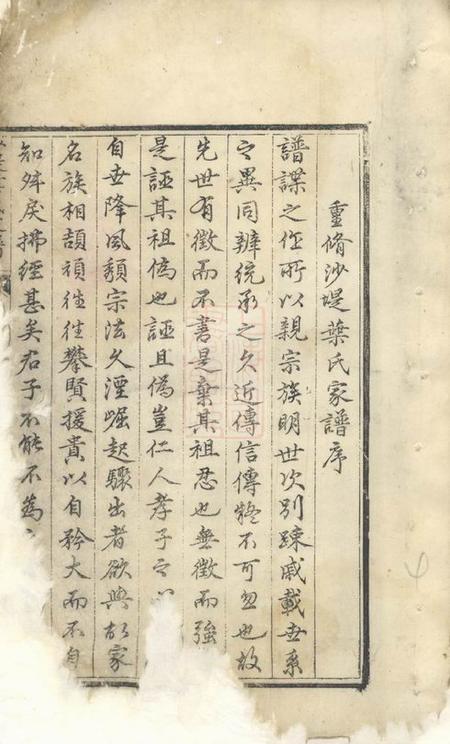 重脩沙堤葉氏家譜序
譜諜之作所以親宗族明世次別踈戚載世系
之異同辨統承之久近傳信傳疑不可忽也故
先世有徵而不書是棄其祖忍也無徵而強
是誣其祖偽也誣且偽豈仁人孝子之
自世降風頽宗法久湮崛起驟出者欲與故家
名族相頡頏往往攀賢援貴以自矜大而不自
知舛戾拂經甚矣君子不能不為